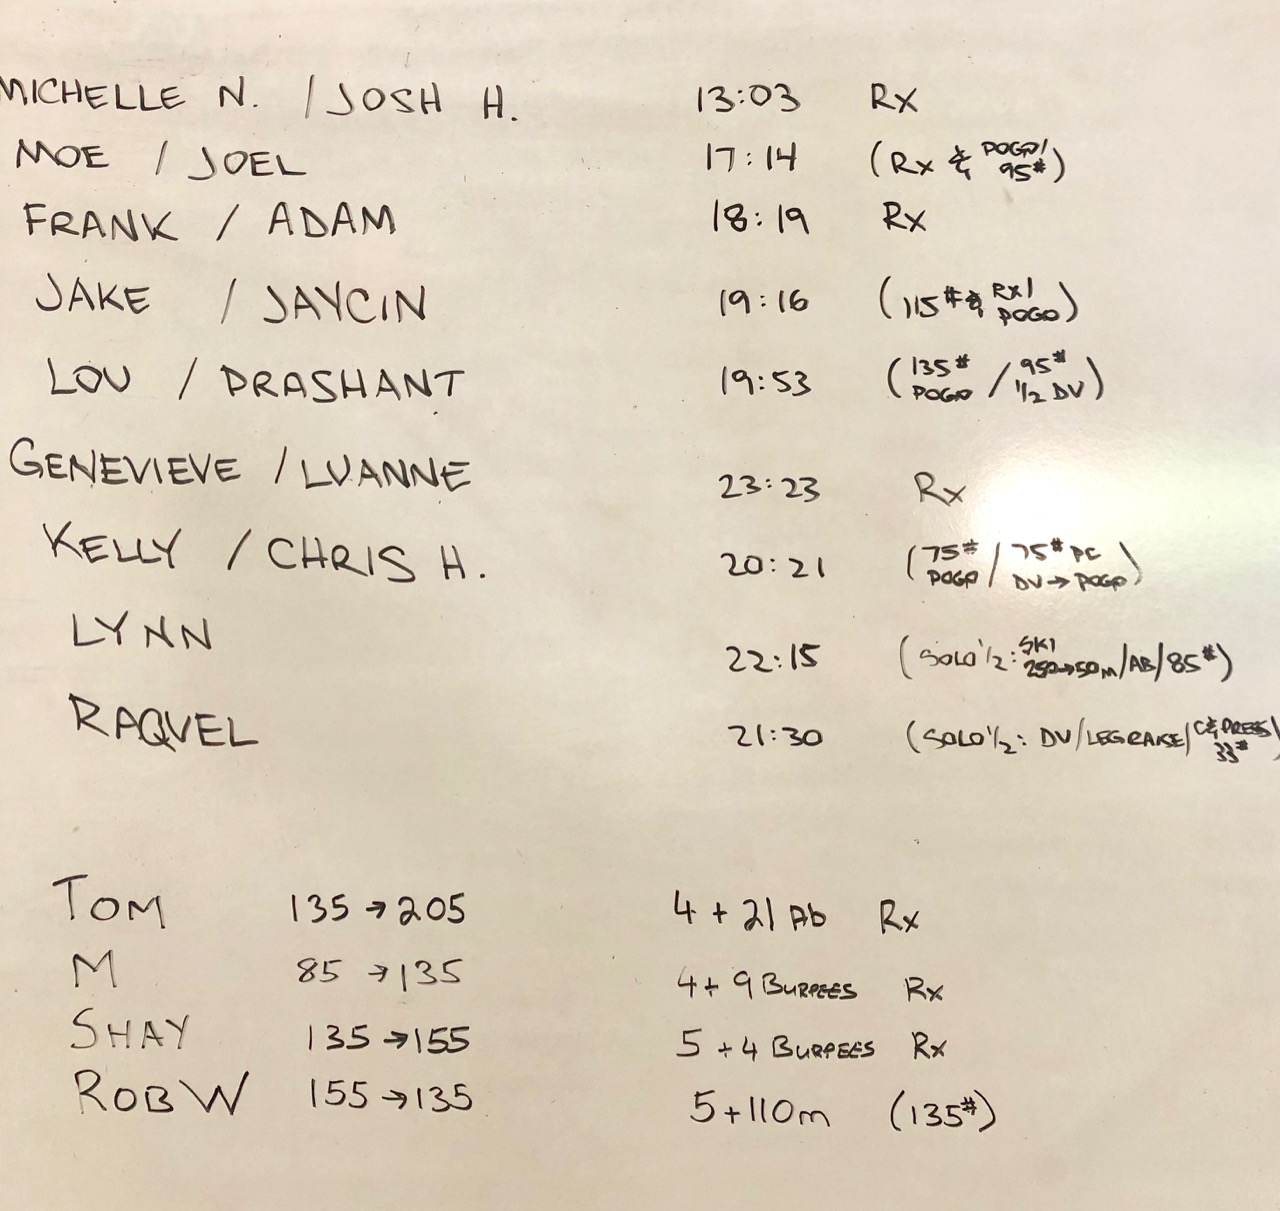 MICHELLE N. / JOSH H. 13:03 Rx
MOE / JOEL 17:14 (Rx & POGO/ 95#)
FRANK / ADAM 18:19 Rx
JAKE / JAYCIN 19:16 (115# & RX/ POGO)
LOU / PRASHANT 19:53 (135# POGO / 95# 1/2 DU)
GENEVIEVE / LUANNE 23:23 Rx
KELLY / CHRIS H. 20:21 (75# POGO / 75# PC DU→POGO)
LYNN 22:15 (SOLO 1/2: SKI 250→50m/AB/85#)
RAQUEL 21:30 (SOLO 1/2: DU/LEGRAISE/C&PRESS 33#)
TOM 135→205 4 + 21 Ab Rx
M 85→135 4 + 9 BURPEES Rx
SHAY 135→155 5 + 4 BURPEES Rx
ROB W 155→135 5 + 110m (135#)